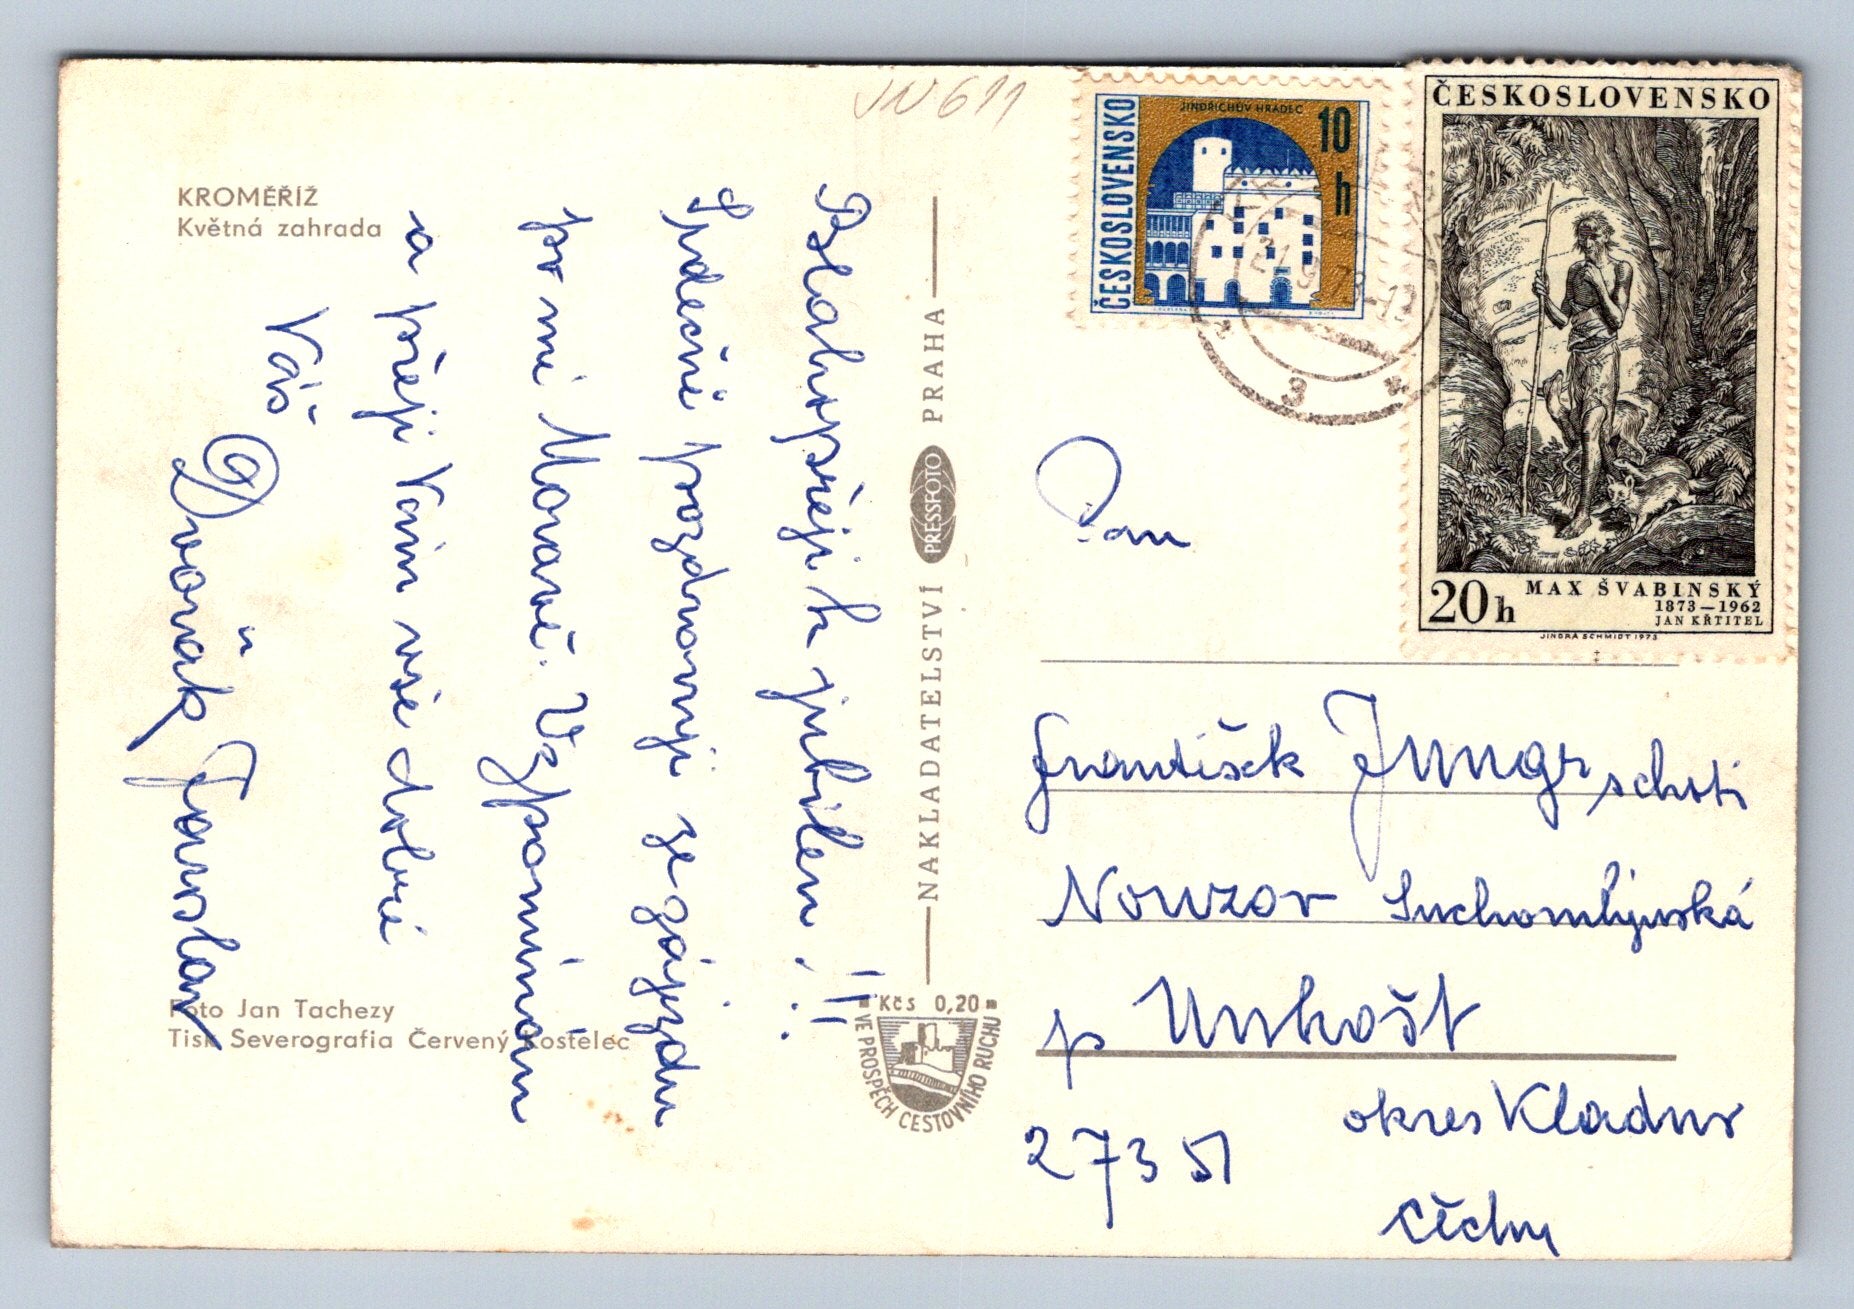 KROMĚŘÍŽ
Květná zahrada
Blahopřeji k jubileu, !!!
Srdečně pozdravuji ze zájezdu
po mé Moravě. Vzpomínám
a přeji Vám vše dobré
Váš
Dvořák Jaroslav
Foto Jan Tachezy
Tisk Severografia Červený Kostelec
NAKLADATELSTVÍ PRESSFOTO PRAHA
Kčs 0,20
VE PROSPĚCH CESTOVNÍHO RUCHU
ČESKOSLOVENSKO
JINDŘICHŮV HRADEC
10 h
ČESKOSLOVENSKO
20 h
MAX ŠVABINSKÝ
1873–1962
JAN KŘTITEL
JINDRA SCHMIDT 1973
3
Pan
František Jungr
Nouzov
p Unhošť
okres Kladno
273 51
Čechy